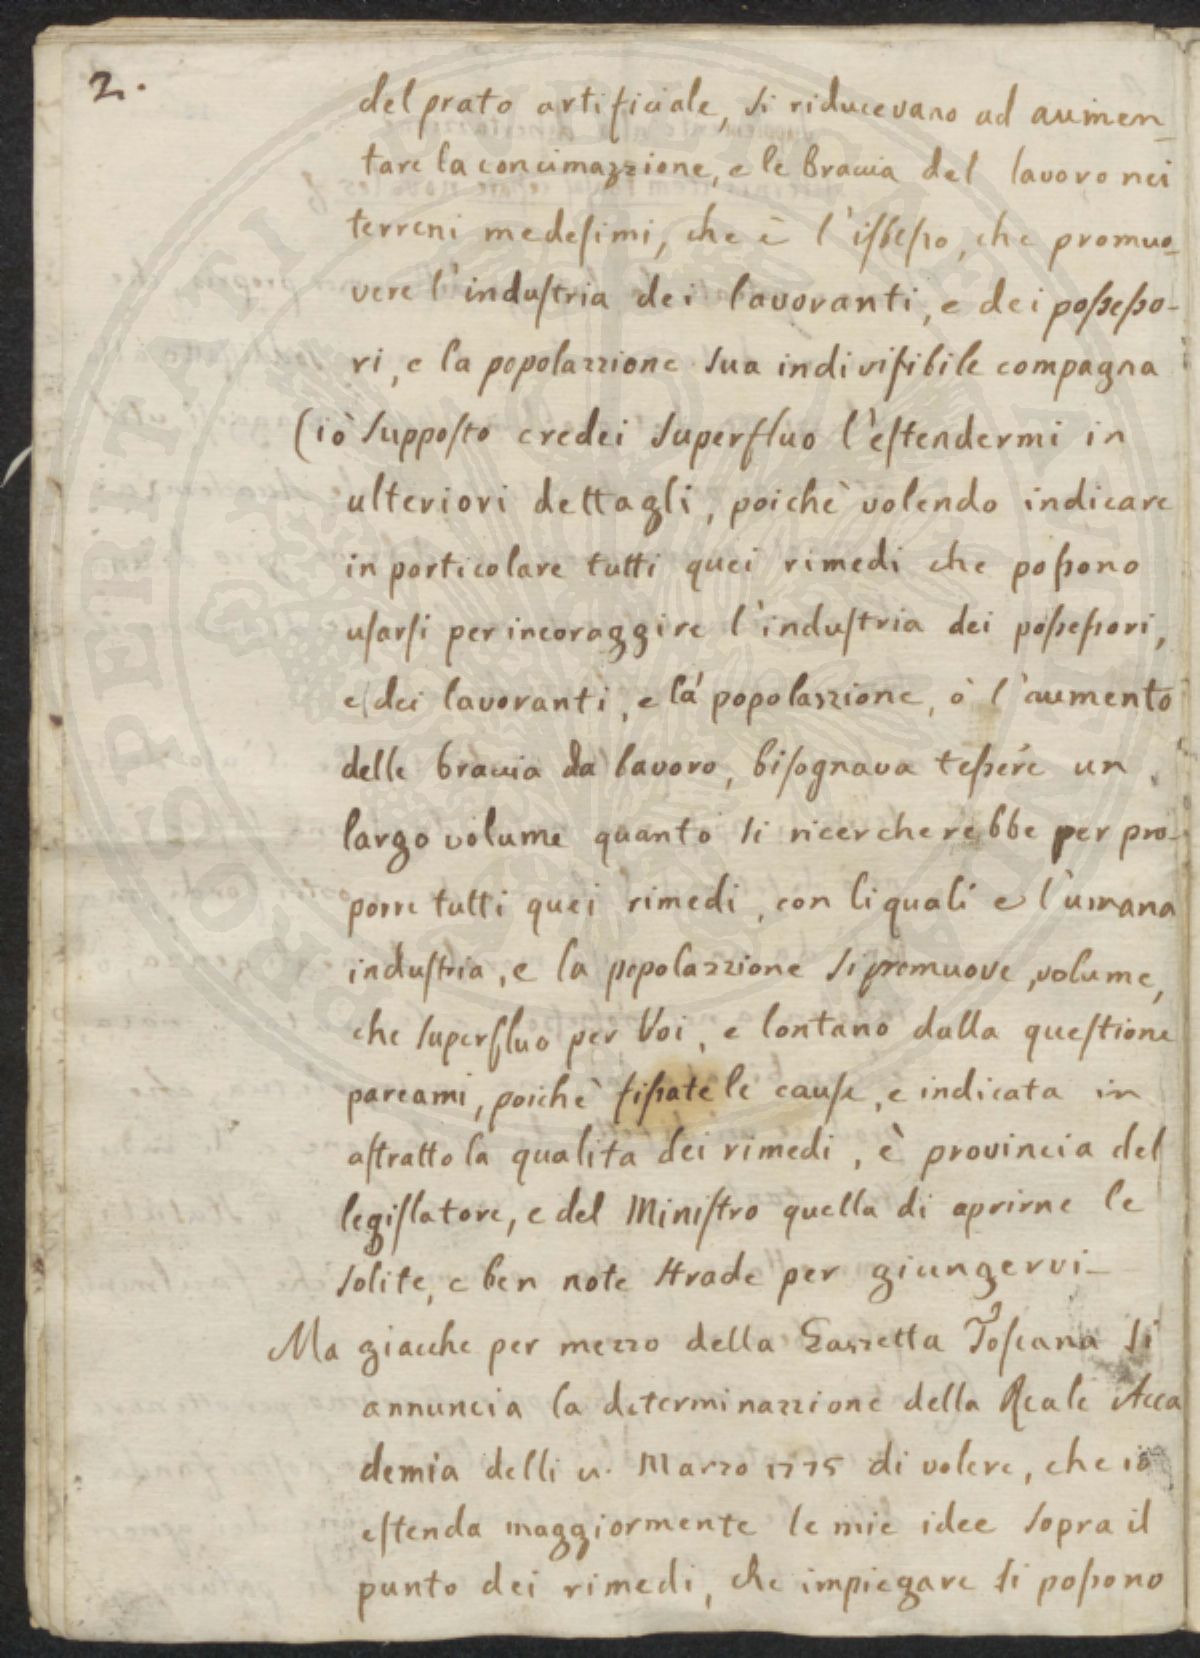 2.
del prato artificiale, si riducevano ad aumen_
tare la concimazzione, e le braccia del lavoro nei
terreni medesimi, che è l'istesso, che promuo_
vere l'industria dei lavoranti, e dei possesso-
ri, e la popolazzione sua indivisibile compagna
Ciò supposto credei superfluo l'estendermi in
ulteriori dettagli, poichè volendo indicare
in particolare tutti quei rimedi che possono
usarsi per incoraggire l'industria dei possessori,
e dei lavoranti, e la popolazzione, o l'aumento
delle braccia da lavoro, bisognava tessere un
largo volume quanto si ricercherebbe per pro-
porre tutti quei rimedi, con li quali e l'umana
industria, e la popolazzione si promuove, volume,
che superfluo per Voi, e lontano dalla questione
pareami, poichè fissate le cause, e indicata in
astratto la qualita dei rimedi, è provincia del
legislatore, e del Ministro quella di aprirne le
solite, e ben note strade per giungervi_
Ma giacche per mezzo della Gazzetta Toscana si
annuncia la determinazzione della Reale Acca
demia delli u. Marzo 1775 di volere, che io
estenda maggiormente le mie idee sopra il
punto dei rimedi, che impiegare si possono
PROSPERITATI PUBLICAE AUGENDAE